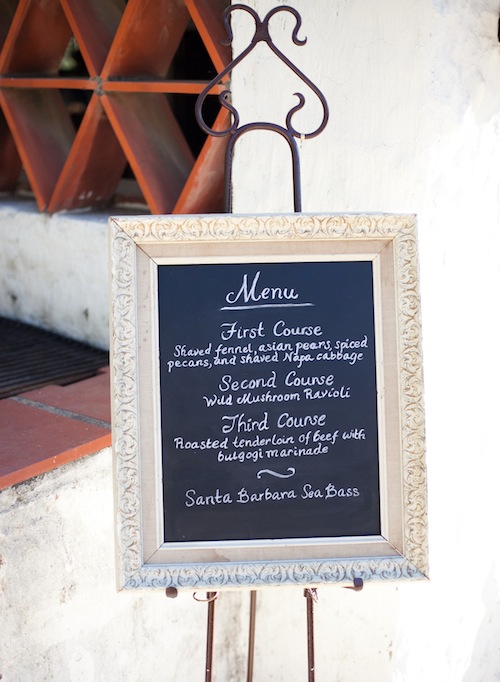 Menu
First Course
Shaved fennel, asian pears, spiced
pecans, and shaved Napa cabbage
Second Course
Wild Mushroom Ravioli
Third Course
Roasted tenderloin of beef with
bulgogi marinade
Santa Barbara Sea Bass